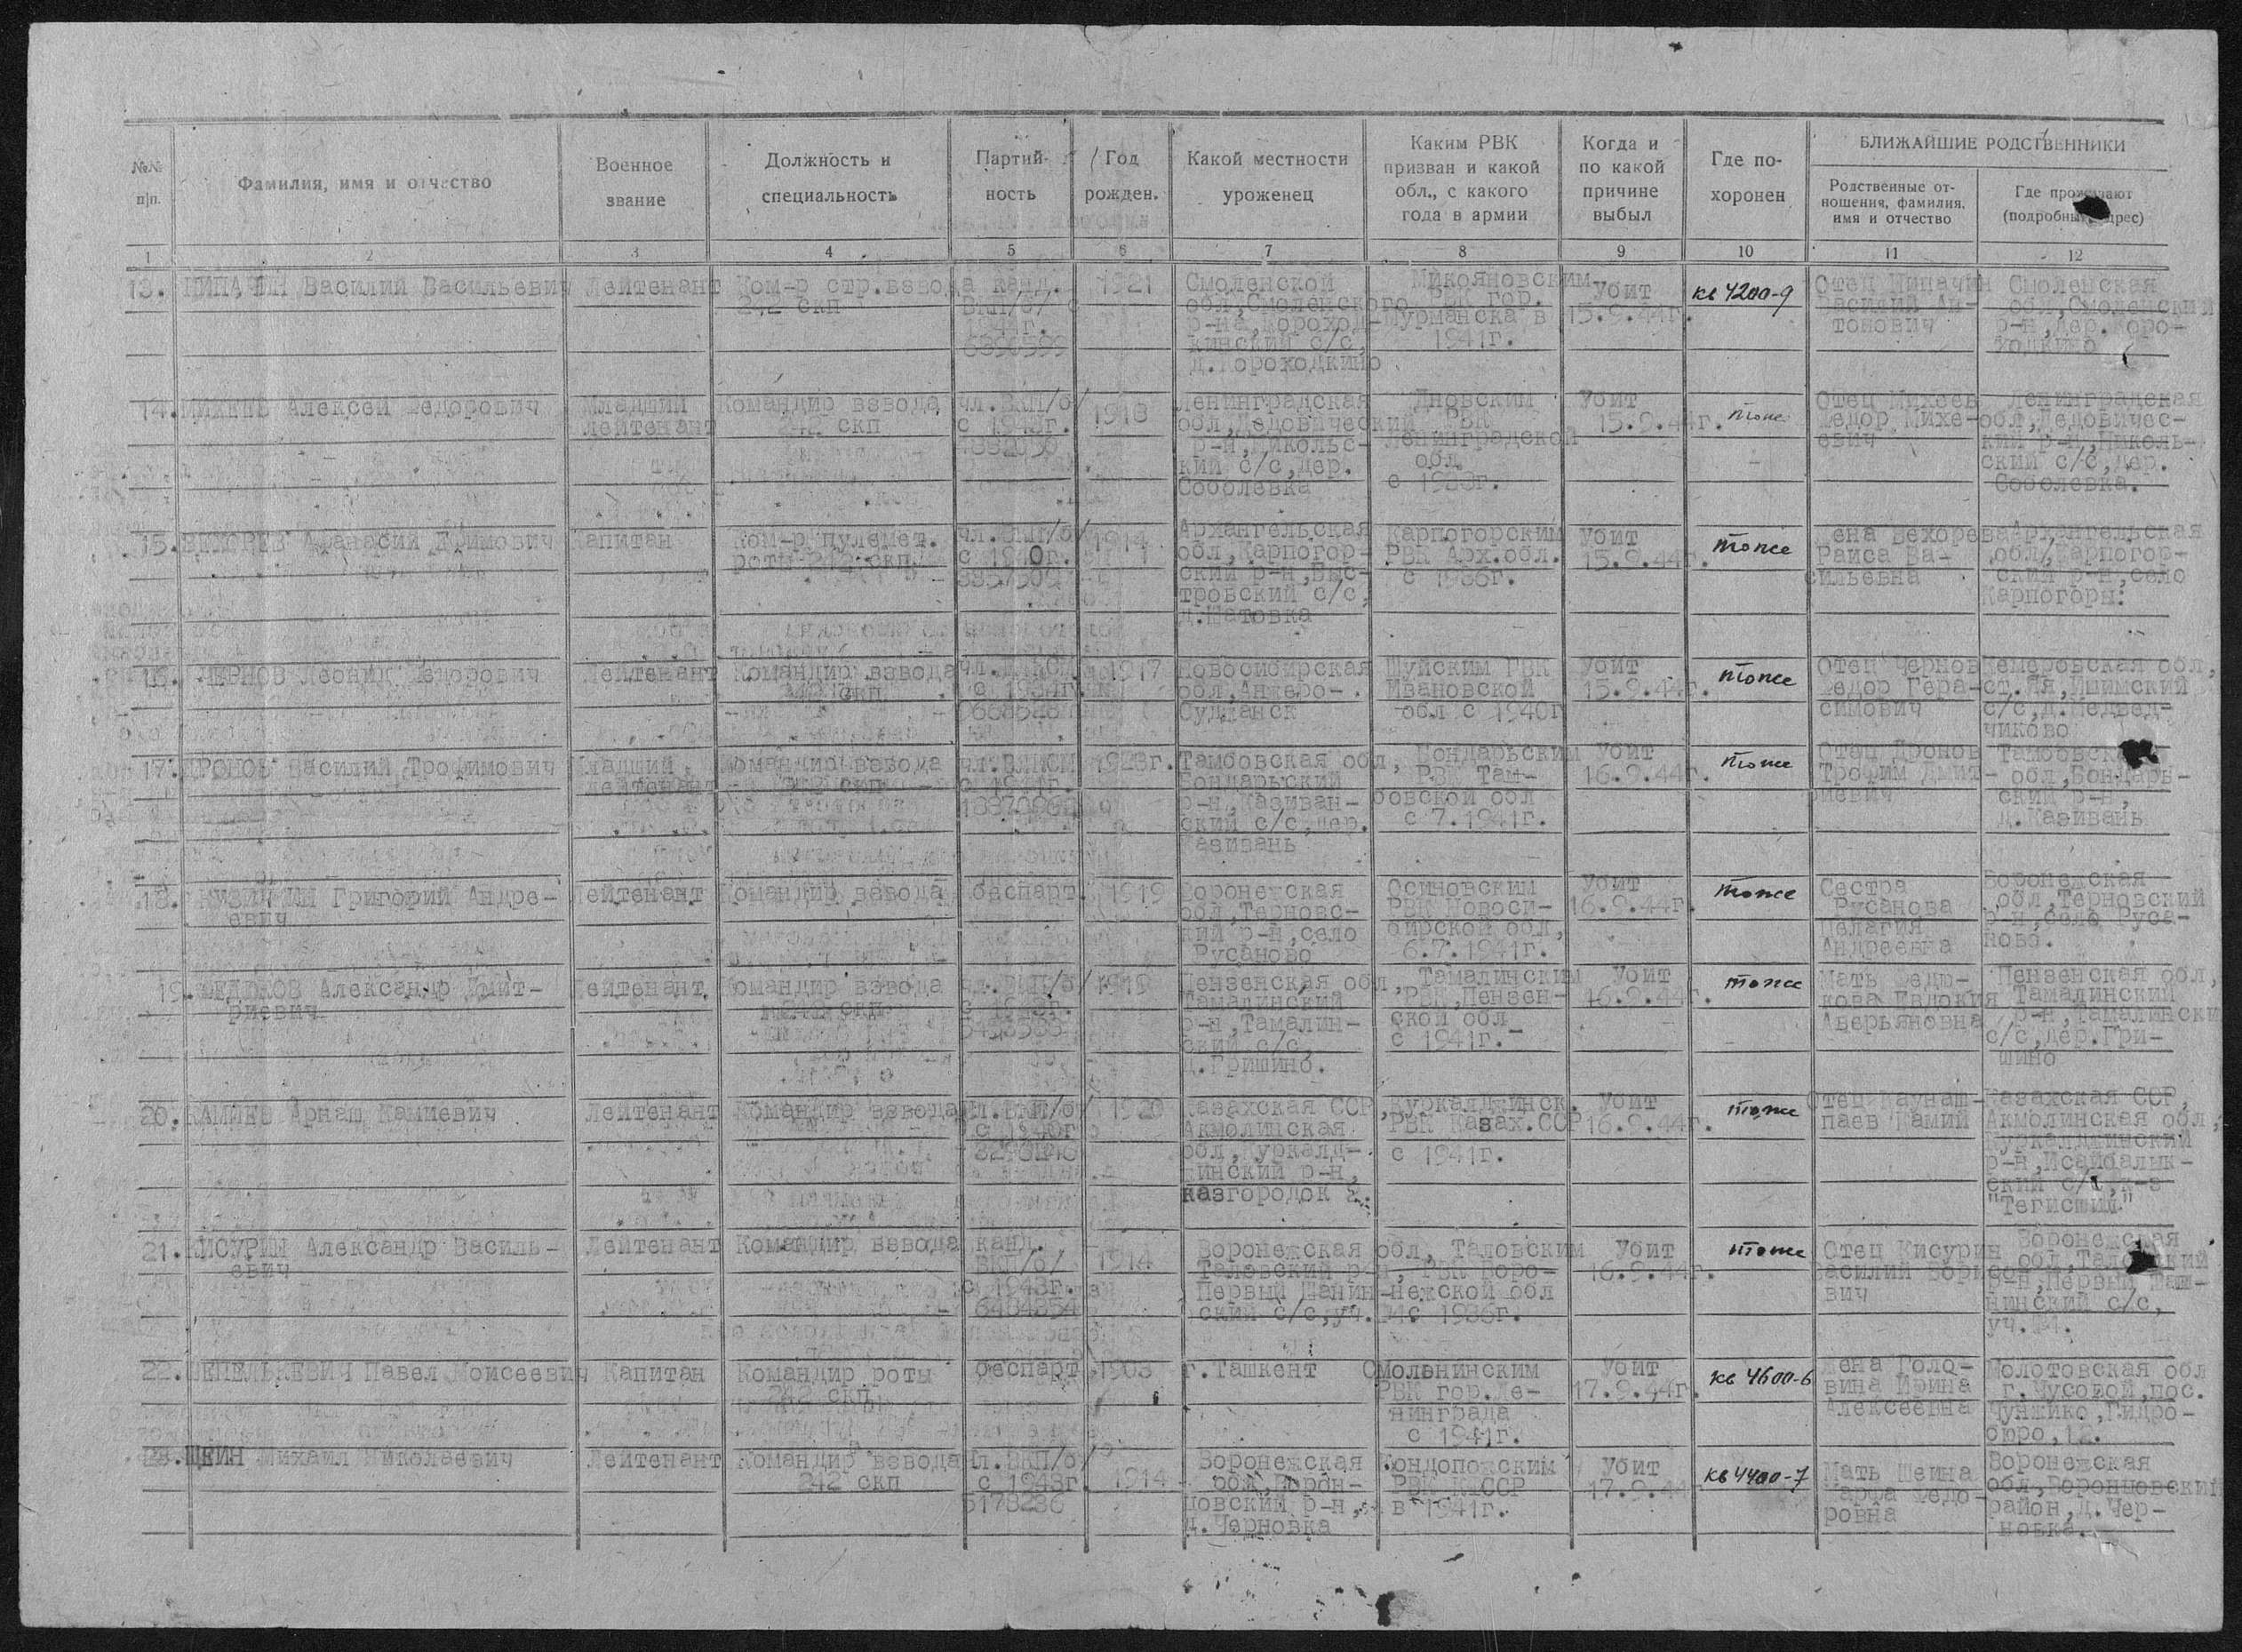 №№ п/п.
Фамилия, имя и отчество
Военное звание
Должность и специальность
Партийность
Год рожден.
Какой местности уроженец
Каким РВК призван и какой обл., с какого года в армии
Когда и по какой причине выбыл
Где похоронен
БЛИЖАЙШИЕ РОДСТВЕННИКИ
Родственные отношения, фамилия, имя и отчество
Где проживают (подробный адрес)
1 2 3 4 5 6 7 8 9 10 11 12
13. Василий Васильевич
Лейтенант
Ком-р стр.взвода
канд.
ВКП/б/ с
1944г.
1921
Смоленской
обл,Смоленского
р-на,Короход-
кинский с/с,
д.Короходкино
Микояновским
РВК гор.
Мурманска в
1941г.
Убит
15.9.44г.
кв 4200-9
Отец Шипачин
Василий Ан-
тонович
Смоленская
обл,Смоленский
р-н,дер.Коро-
ходкино
14. МИХЕЕВ Алексей Федорович
Младший
Лейтенант
Командир взвода
242 скп
чл.ВКП/б/
с 1943г.
1918
Ленинградская
обл,Дедовический
р-н,Никольс-
кий с/с,дер.
Соболевка
Дновским
РВК
Ленинградской
обл
с 1938г.
Убит
15.9.44г.
тоже
Отец Михеев
Федор Михе-
евич
Ленинградская
обл,Дедовичес-
кий р-н,Николь-
ский с/с,дер.
Соболевка.
15. ВЕХОРЕВ Афанасий Ефимович
Капитан
Ком-р пулемет.
роты 242 скп
чл.ВКП/б/
с 1940г.
1914
Архангельская
обл,Карпогор-
ский р-н,Выс-
тровский с/с,
д.Шатовка
Карпогорским
РВК Арх.обл.
с 1936г.
Убит
15.9.44г.
тоже
Жена Вехорева
Раиса Ва-
сильевна
Архангельская
обл,Карпогор-
ский р-н,село
Карпогоры.
16. ЧЕРНОВ Леонид Федорович
Лейтенант
Командир взвода
242 скп
1917
Новосибирская
обл,Анжеро-
Судданск
Шуйским РВК
Ивановской
обл с 1940г
Убит
15.9.44г.
тоже
Отец Чернов
Федор Гера-
симович
Кемеровская обл,
ст.Яя,Ишимский
с/с,д.Медвед-
чиково
17. ДРОНОВ Василий Трофимович
Младший
Лейтенант
Командир взвода
242 скп
чл.ВЛКСМ
с 1941г.
1923г.
Тамбовская обл,
Бондарьский
р-н,Казиван-
ский с/с,дер.
Казивань
Бондарьским
РВК Там-
бовской обл
с 7.1941г.
Убит
16.9.44г.
тоже
Отец Дронов
Трофим Дмит-
риевич
Тамбовская
обл,Бондарь-
ский р-н,
д.Казивань
18. КУЗИЧКИН Григорий Андре-
евич
Лейтенант
Командир взвода
беспарт.
1919
Воронежская
обл,Терновс-
кий р-н,село
Русаново
Осиновским
РВК Новоси-
бирской обл,
6.7.1941г.
Убит
16.9.44г.
тоже
Сестра
Русанова
Пелагия
Андреевна
Воронежская
обл,Терновский
р-н,село Руса-
ново.
19. ФЕДЮКОВ Александр Дмит-
риевич
Лейтенант
Командир взвода
242 скп
чл.ВКП/б/
с 1943г.
1919
Пензенская обл,
Тамалинский
р-н,Тамалин-
ский с/с,
д.Гришино.
Тамалинским
РВК,Пензен-
ской обл
с 1941г.
Убит
16.9.44г.
тоже
Мать Федю-
кова Евдокия
Аверьяновна
Пензенская обл,
Тамалинский
р-н,Тамалински
с/с,дер.Гри-
шино
20. КАМИЕВ Арнаш Камиевич
Лейтенант
Командир взвода
чл.ВКП/б/
1920
Казахская ССР,
Акмолинская
обл,Куркалд-
жинский р-н,
казгородок
Куркалджинск.
РВК Казах.ССР
с 1941г.
Убит
16.9.44г.
тоже
Отец Каунаш-
паев Камий
Казахская ССР,
Акмолинская обл,
Куркалджинский
р-н,Исайбалык-
ский с/с,к-з
21. КИСУРИН Александр Василь-
евич
Лейтенант
Командир взвода
канд.
ВКП/б/
с 1943г.
6484354
1914
Воронежская обл,
Таловский р-н,
Первый Шанин-
ский с/с,уч.
Таловским
РВК Воро-
нежской обл
с 1936г.
Убит
16.9.44г.
тоже
Отец Кисурин
Василий Борисо-
вич
Воронежская
обл,Таловский
р-н,Первый Шан-
нинский с/с,
22. ШЕПЕЛЬКЕВИЧ Павел Моисеевич
Капитан
Командир роты
242 скп
беспарт.
1903
г.Ташкент
Смоленинским
РВК гор.Ле-
нинграда
с 1941г.
Убит
17.9.44г.
кв 4600-6
Жена Голо-
вина Ирина
Алексеевна
Молотовская обл
г.Чусовой,пос.
Чунжино,Гидро-
бюро,12.
23. ШЕИН Михаил Николаевич
Лейтенант
Командир взвода
242 скп
Чл.ВКП/б/
с 1943г.
5178236
1914
Воронежская
обл,Ворон-
цовский р-н,
д.Черновка
Кондопожским
РВК КФССР
в 1941г.
Убит
17.9.44
кв 4400-7
Мать Шеина
Марфа Федо-
ровна
Воронежская
обл,Воронцовский
район,д.Чер-
новка.